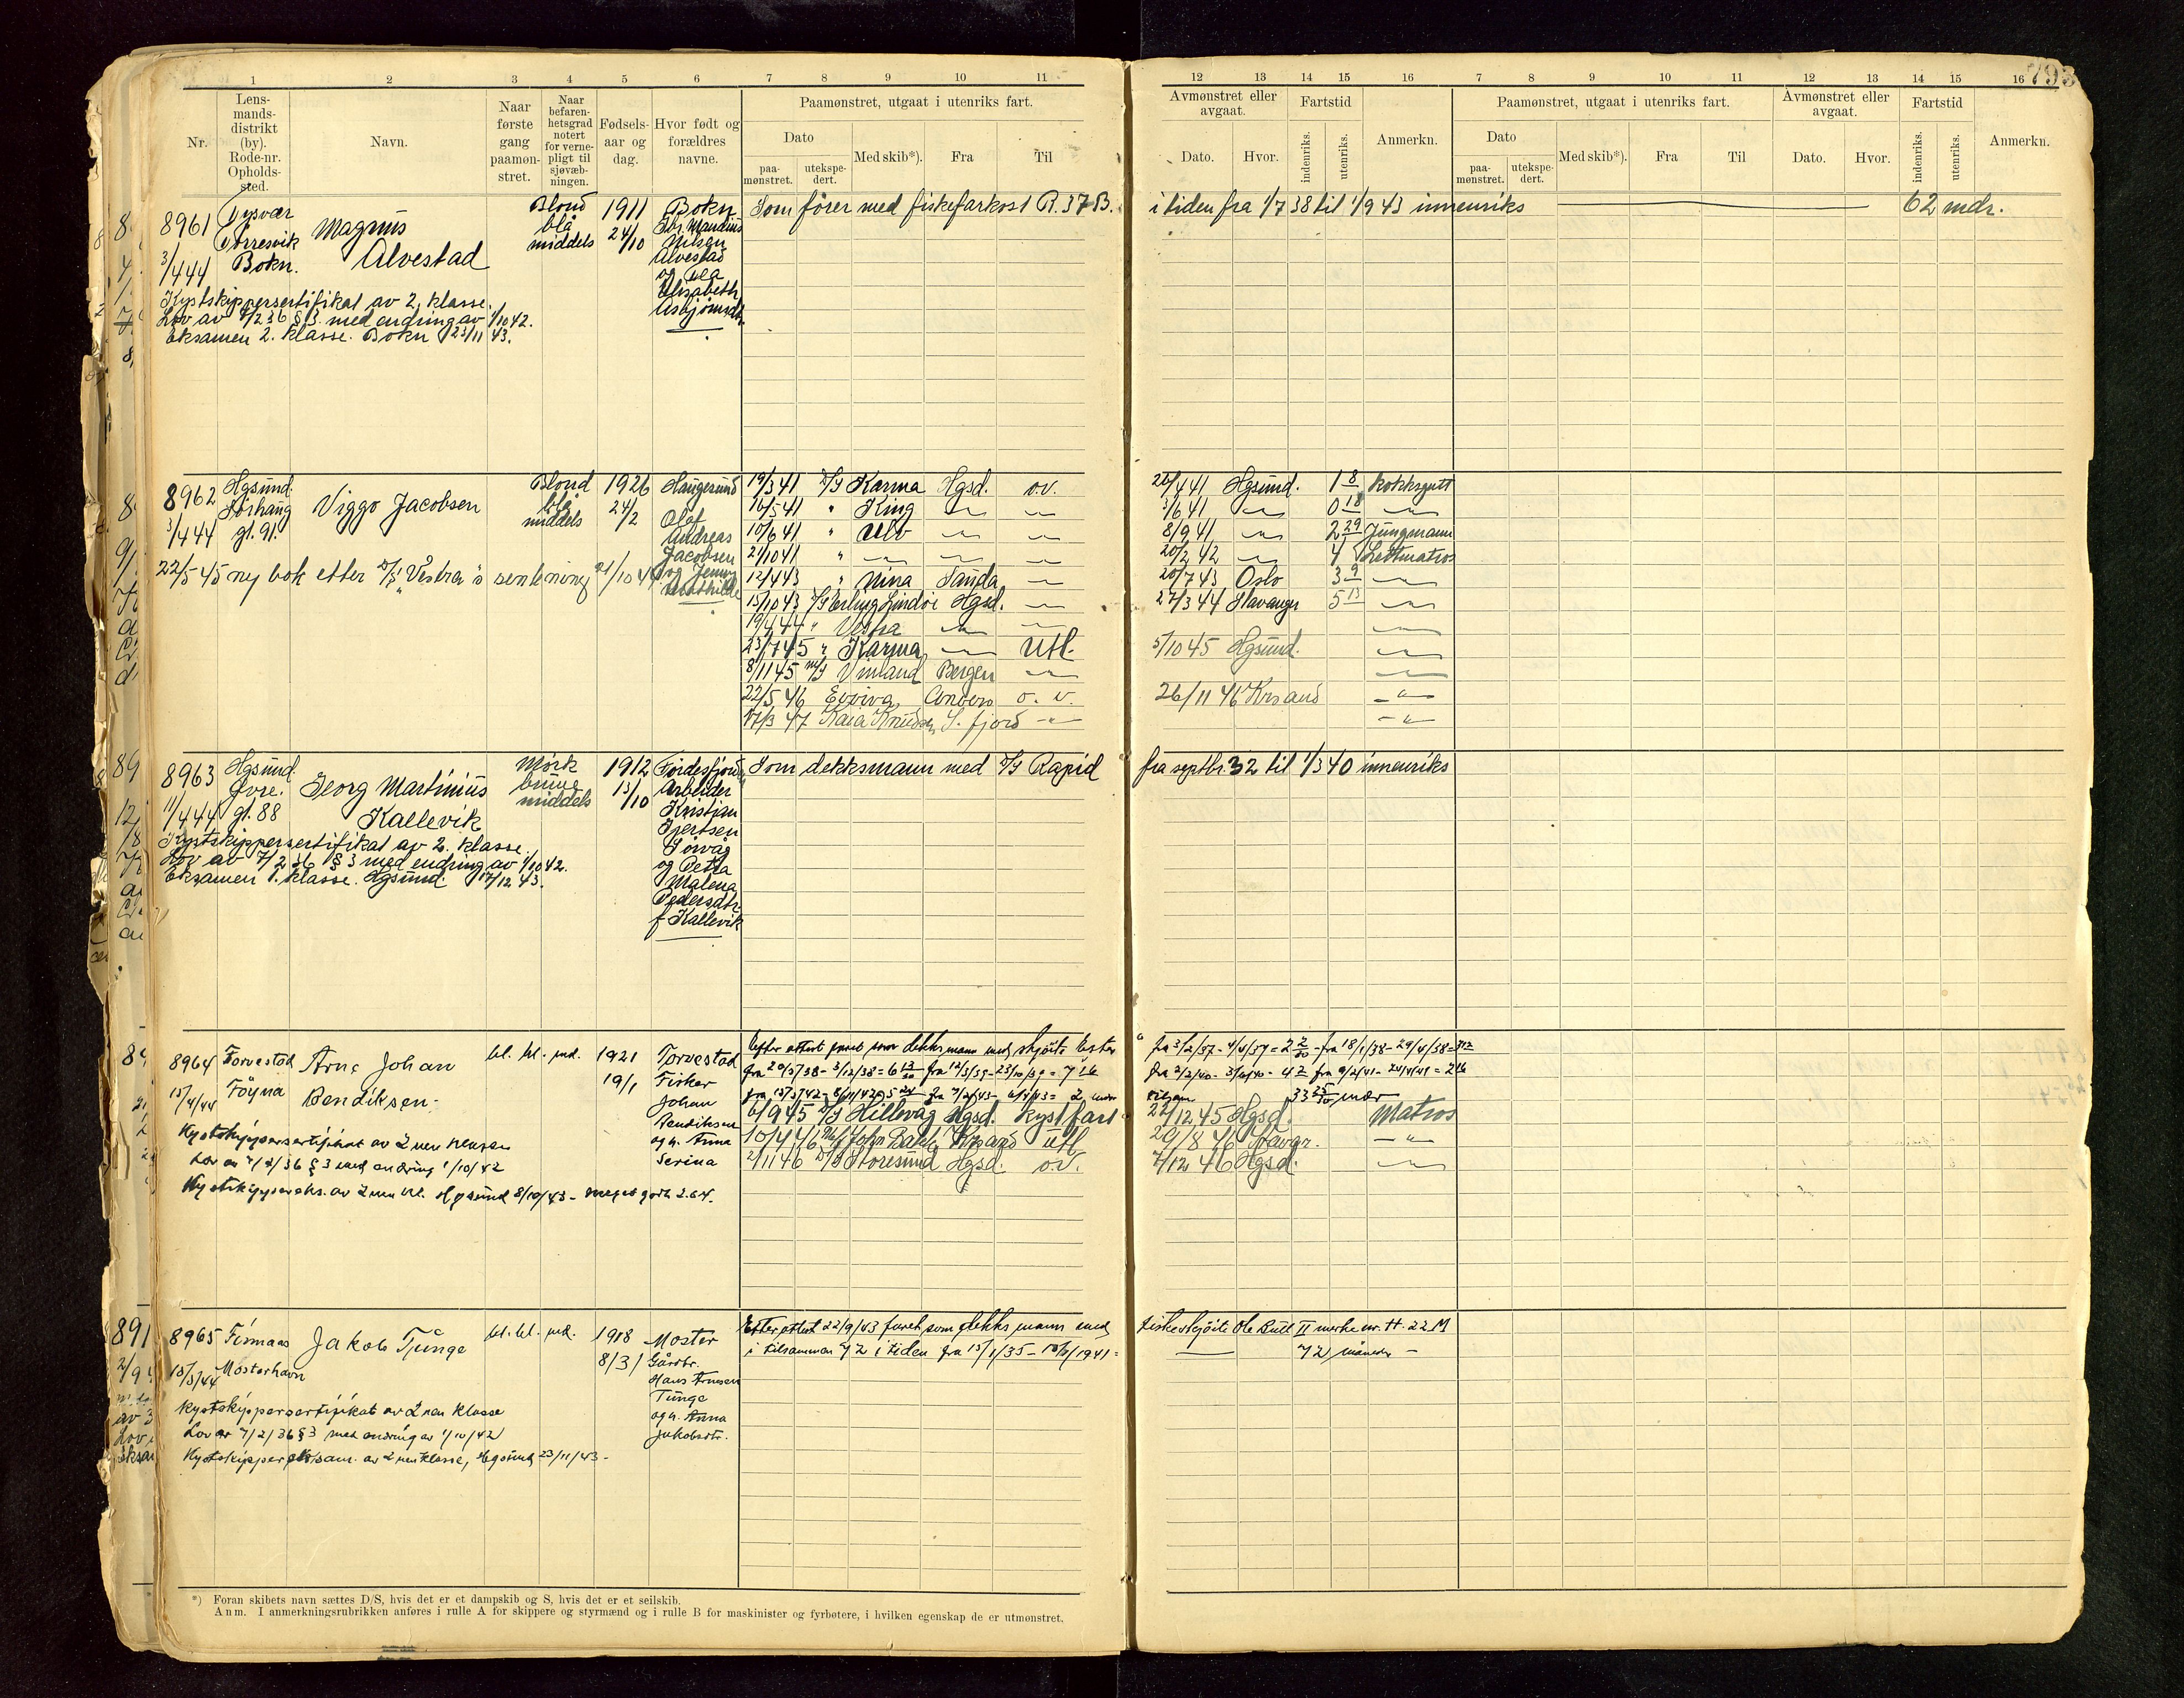 793
1 2 3 4 5 6 7 8 9 10 11
Nr.
Lens-
mands-
distrikt
(by).
Rode-nr.
Opholds-
sted.
Navn.
Naar
første
gang
paamøn-
stret.
Naar
befaren-
hetsgrad
notert
for verne-
pligt til
sjøvæb-
ningen.
Fødsels-
aar og
dag.
Hvor født og
forældres
navne.
Paamønstret, utgaat i utenriks fart.
Dato
paa-
mønstret.
utekspe-
dert.
Med skib*).
Fra
Til
12 13 14 15 16 7 8 9 10 11 12 13 14 15 16
Avmønstret eller
avgaat.
Dato.
Hvor.
Fartstid
indenriks.
utenriks.
Anmerkn.
Paamønstret, utgaat i utenriks fart.
Dato
paa-
mønstret.
utekspe-
dert.
Med skib*).
Fra
Til
Avmønstret eller
avgaat.
Dato.
Hvor.
Fartstid
indenriks.
utenriks.
Anmerkn.
8961
3/4 44
Tysvær
Bokn.
Magnus
Alvestad
Blond
blå
middels
1911
24/10
Bokn
Nilsen
Alvestad
og
Elisabeth
Asbjørnsdtr.
Som fører med fiskefarkost R.37B. i tiden fra 1/7 38 til 1/9 43 innenriks 62 mdr.
Kystskippersertifikat av 2. klasse.
Lov av 7/2 36 § 3 med endring av 1/10 42.
Eksamen 2. klasse. Bokn 23/11 43.
8962
3/4 44
Hgsund
Sørhaug
gt. 91.
Viggo Jacobsen
Blond
blå
middels
1926
24/2
Haugesund
Olaf
Andreas
Jacobsen
og Jenny
Mathilde
22/5-45 ny bok etter D/S "Vestra"s senkning 21/10 44
19/3 41 D/S Karma Hgsd. o.v. Hgsund. 1 8 kokksgutt
16/5 41 " King 3/6 41 0 18
10/6 41 " Ulv 8/9 41 2 29 Jungmann
2/10 41 " 20/2 42 4 Lettmatros
12/4 43 " Nina Sauda 20/7 43 Oslo 3 9
15/10 43 D/S Erling Lindøe Hgsd. 27/3 44 Stavanger 5 13
19/4 44 " Vestra
23/7 45 " Karma Utl. 5/10 45 Hgsund.
8/11 45 M/S Vinland Bergen
22/5 46 Eviva o. v. 26/11 46 Krsand
17/3 47 Kaia Knudsen S. fjord
8963
11/4 44
Hgsund
Øvre.
gt. 88
Georg Martinius
Kallevik
Mørk
brune
middels
1912
13/10
Førdesfjord
Arbeider
Kristian
Gjertsen
Sørvåg
og Petra
Malena
Pedersdtr.
f. Kallevik
Som dekksmann med D/S Rapid fra septbr. 32 til 1/3 40 innenriks
Kystskippersertifikat av 2. klasse.
Lov av 7/2 36 § 3 med endring av 1/10 42.
Eksamen 1. klasse. Hgsund 17/12 43.
8964
15/4/44
Torvestad
Føyna
Arne Johan
Bendiksen
bl. bl. md.
1921
19/1
Torvestad
Fisker
Johan
Bendiksen
og h. Anna
Serina
Efter attest faret som dekksmann med skjøite Ester
fra 3/2/37 - 4/4/37 = 2 2/30 - fra 18/1/38 - 29/4/38 =
33 25/30 mdr
6/9 45 D/S Hillvåg Hgsd. kystfart 22/12 45 Hgsd. Matros
10/4 46 M/S John Bakke Krsand utl. 29/8 46
2/11 46 D/S Storesund Hgsd. o.v. 7/12 46 Hgsd.
Kystskippersertifikat av 2nen klasse
Lov av 7/2/36 § 3 med endring 1/10/42
Kystskippereks. av 2nen kl. Hgsund 8/10/43 - meget godt 2.64.
8965
15/5/44
Finnaas
Mosterhavn
Jakob Tunge
bl. bl. md.
1918
8/3
Moster
Gårdbr.
Hans Arnesen
Tunge
og h. Anna
Jakobsdtr.
Efter attest 22/9/43 faret som dekksmann med fiskeskjøite Ole Bull II merke nr. H. 22 M
i tilsammen 72 i tiden fra 15/1/35 - 72 måneder -
Kystskippersertifikat av 2nen klasse
Lov av 7/2/36 § 3 med endring av 1/10/42
Kystskippereksam. av 2nen klasse, Hgsund 23/11/43 -
*) Foran skibets navn sættes D/S, hvis det er et dampskib og S, hvis det er et seilskib.
Anm. I anmerkningsrubrikken anføres i rulle A for skippere og styrmænd og i rulle B for maskinister og fyrbøtere, i hvilken egenskap de er utmønstret.